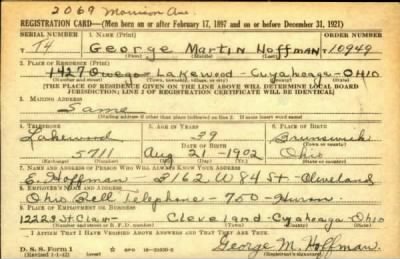 2069 Morrison Ave.
REGISTRATION CARD—(Men born on or after February 17, 1897 and on or before December 31, 1921)
SERIAL NUMBER 1. NAME (Print) ORDER NUMBER
T4 George Martin Hoffman 10949
(First) (Middle) (Last)
2. PLACE OF RESIDENCE (Print)
1427 Owego Lakewood - Cuyahoga - OHIO
(Number and street) (Town, township, village, or city) (County) (State)
[THE PLACE OF RESIDENCE GIVEN ON THE LINE ABOVE WILL DETERMINE LOCAL BOARD
JURISDICTION; LINE 2 OF REGISTRATION CERTIFICATE WILL BE IDENTICAL]
3. MAILING ADDRESS
Same
(Mailing address if other than place indicated on line 2. If same insert word same)
4. TELEPHONE 5. AGE IN YEARS 6. PLACE OF BIRTH
Lakewood 39 Brunswick
DATE OF BIRTH (Town or county)
5711 Aug 21 - 1902 Ohio
(Exchange) (Number) (Mo.) (Day) (Yr.) (State or country)
7. NAME AND ADDRESS OF PERSON WHO WILL ALWAYS KNOW YOUR ADDRESS
E. Hoffman 3162 W 84 St - Cleveland
8. EMPLOYER'S NAME AND ADDRESS
Ohio Bell Telephone - 750 - Huron
9. PLACE OF EMPLOYMENT OR BUSINESS
12223 St Clair - Cleveland - Cuyahoga Ohio
(Number and street or R. F. D. number) (Town) (County) (State)
I AFFIRM THAT I HAVE VERIFIED ABOVE ANSWERS AND THAT THEY ARE TRUE.
D. S. S. Form 1
(Revised 1-1-42) (over) George M. Hoffman
(Registrant's signature)